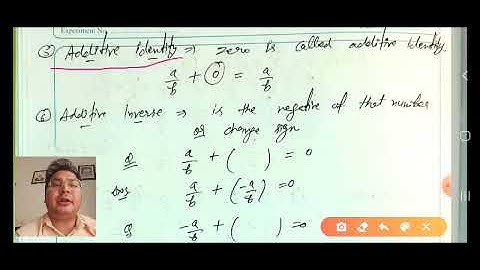 Experiment N
⑤ Additive Identity ⇒ zero is called additive Identity
a/b + 0 = a/b
⑥ Additive Inverse ⇒ is the negative of that number
or change sign
Q a/b + ( ) = 0
Ans a/b + (-a/b) = 0
Q -a/b + ( ) = 0